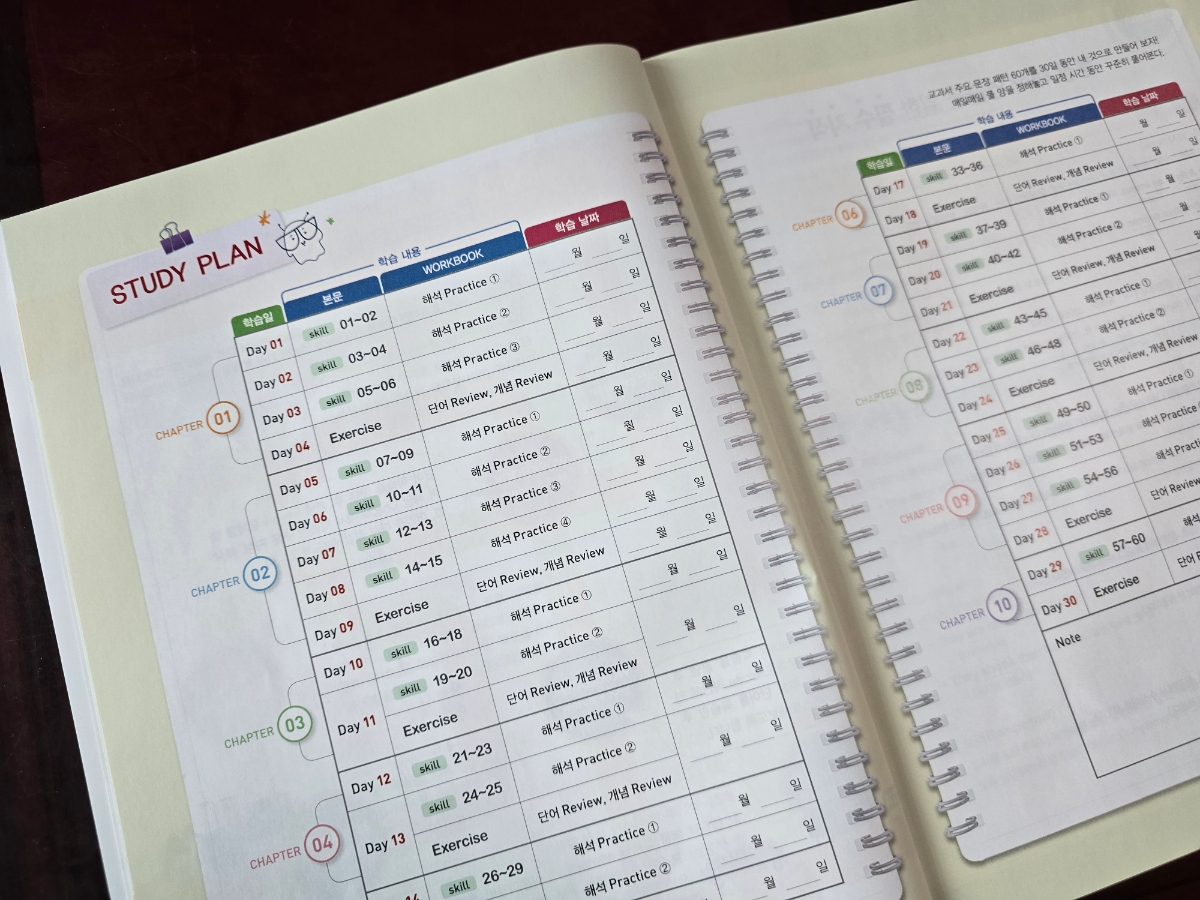 STUDY PLAN
학습 내용
학습일 본문 WORKBOOK 학습 날짜
CHAPTER 01
Day 01 skill 01~02 해석 Practice ① 월 일
Day 02 skill 03~04 해석 Practice ② 월 일
Day 03 skill 05~06 해석 Practice ③ 월 일
Day 04 Exercise 단어 Review, 개념 Review 월 일
CHAPTER 02
Day 05 skill 07~09 해석 Practice ① 월 일
Day 06 skill 10~11 해석 Practice ② 월 일
Day 07 skill 12~13 해석 Practice ③ 월 일
Day 08 skill 14~15 해석 Practice ④ 월 일
Day 09 Exercise 단어 Review, 개념 Review 월 일
CHAPTER 03
Day 10 skill 16~18 해석 Practice ① 월 일
Day 11 skill 19~20 해석 Practice ② 월 일
Exercise 단어 Review, 개념 Review
CHAPTER 04
Day 12 skill 21~23 해석 Practice ① 월 일
Day 13 skill 24~25 해석 Practice ② 월 일
Exercise 단어 Review, 개념 Review
skill 26~29 해석 Practice ① 월 일
해석 Practice ② 월 일
월 일
교과서 주요 문장 패턴 60개를 30일 동안 내 것으로 만들어 보자!
매일매일 풀 양을 정해놓고 일정 시간 동안 꾸준히 풀어본다.
학습 내용
학습일 본문 WORKBOOK 학습 날짜
CHAPTER 06
Day 17 skill 33~36 해석 Practice ① 월 일
Day 18 Exercise 단어 Review, 개념 Review 월 일
CHAPTER 07
Day 19 skill 37~39 해석 Practice ① 월
Day 20 skill 40~42 해석 Practice ② 월
Day 21 Exercise 단어 Review, 개념 Review
CHAPTER 08
Day 22 skill 43~45 해석 Practice ①
Day 23 skill 46~48 해석 Practice ②
Day 24 Exercise 단어 Review, 개념 Review
CHAPTER 09
Day 25 skill 49~50 해석 Practice ①
Day 26 skill 51~53 해석 Practice
Day 27 skill 54~56 해석
Day 28 Exercise 단어
CHAPTER 10
Day 29 skill 57~60 해석
Day 30 Exercise 단어
Note